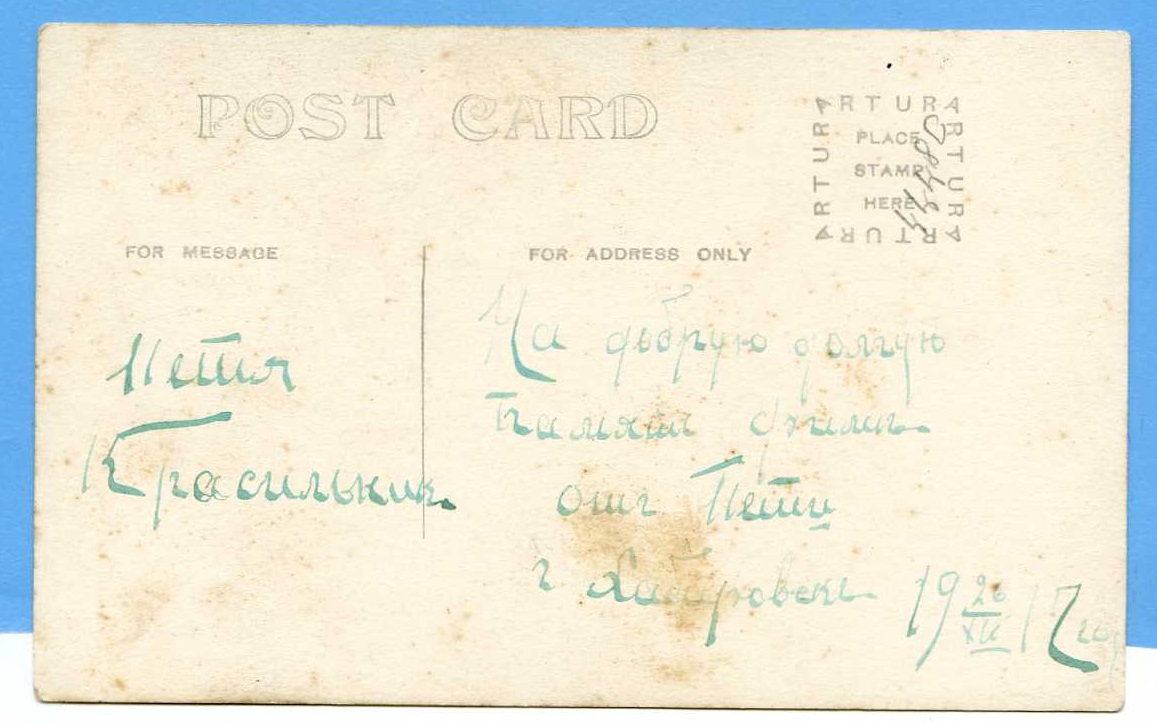 POST CARD
ARTURA
ARTURA
ARTURA
ARTURA
PLACE
STAMP
HERE
FOR MESSAGE
FOR ADDRESS ONLY
Петя
Красильник
На добрую долгую
память
отъ Пети
г Хабаровскъ 19 20/XII 17 год